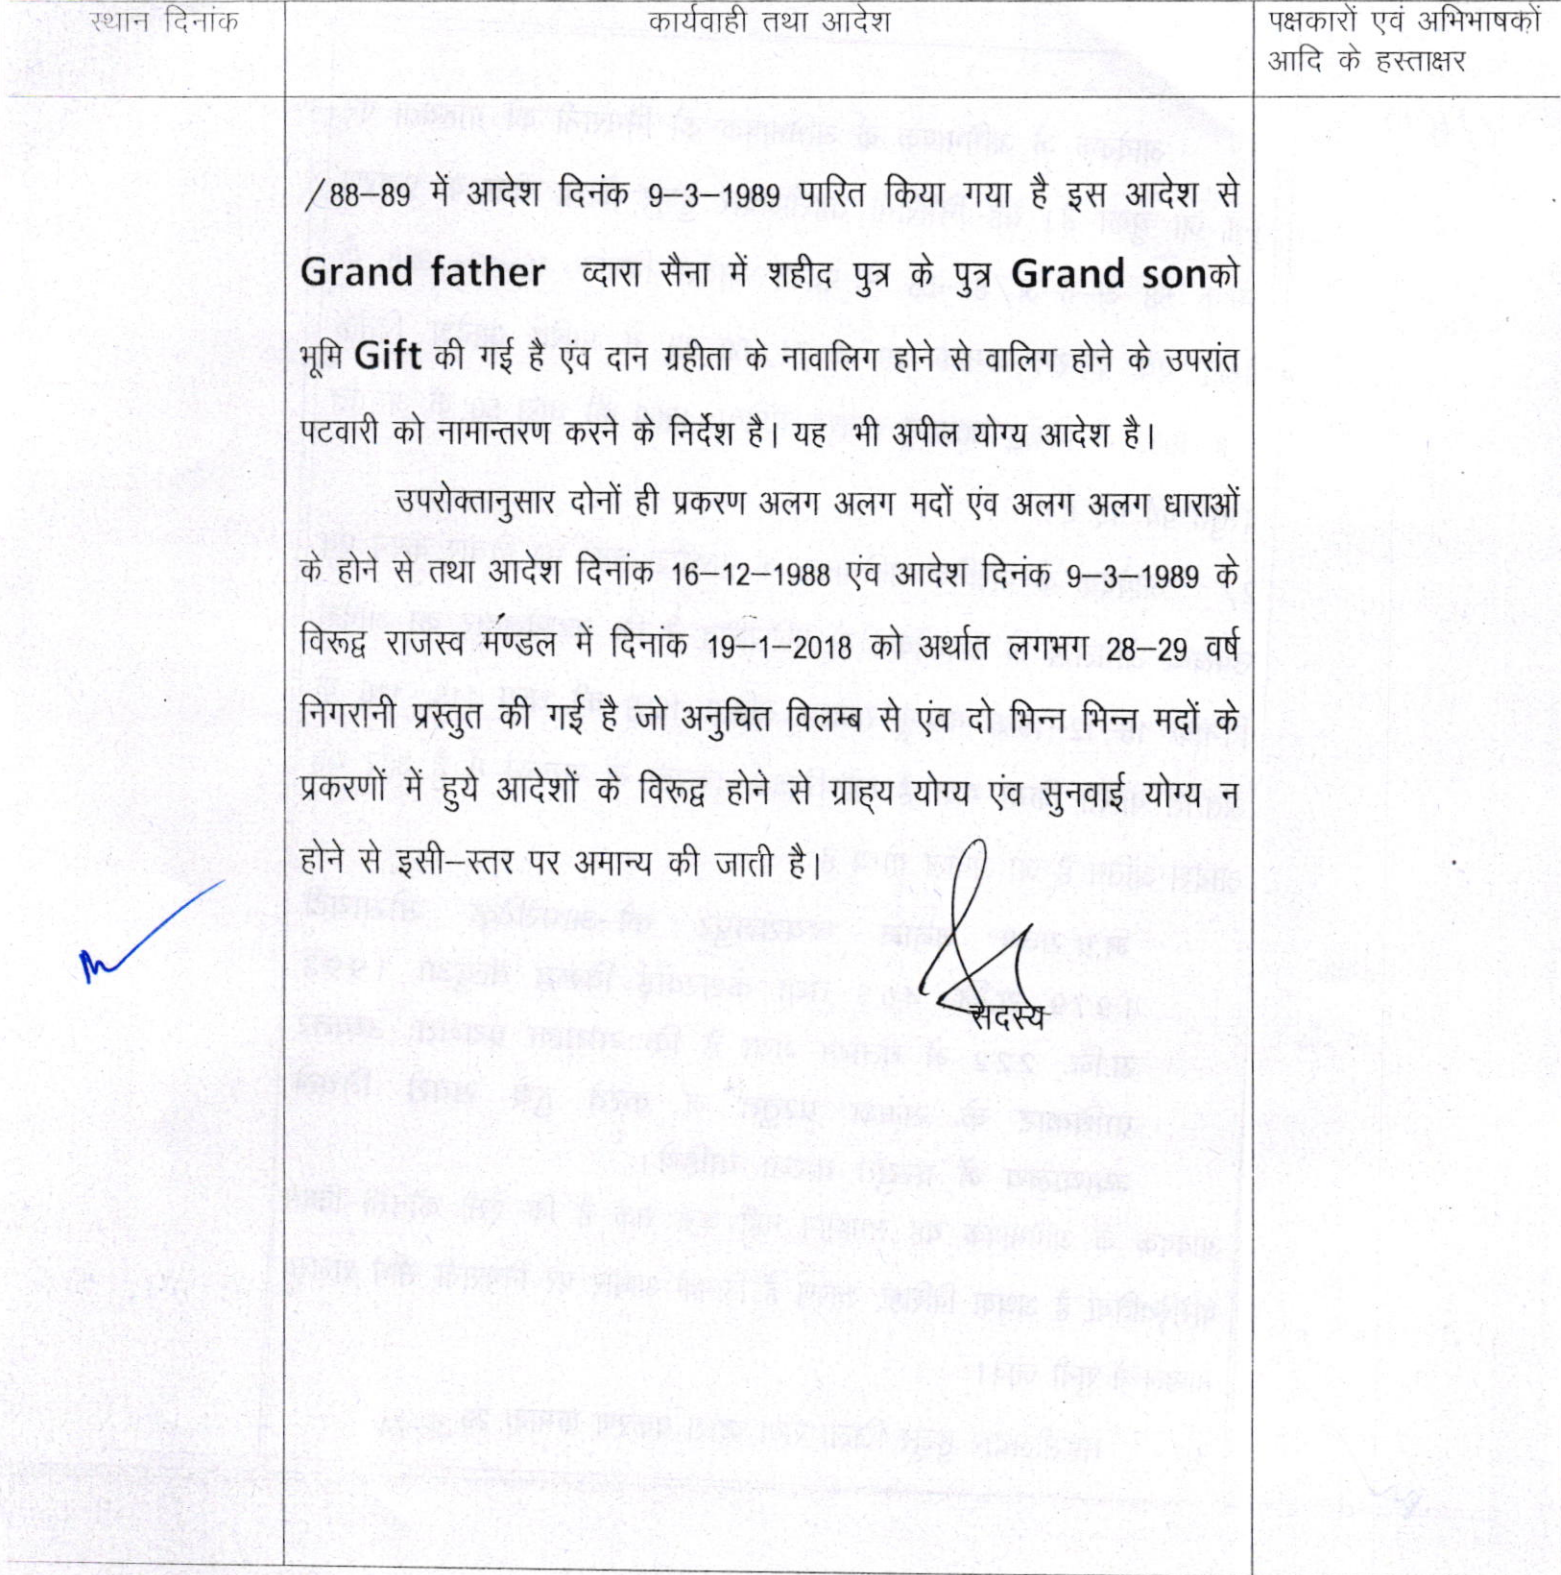 स्थान दिनांक
कार्यवाही तथा आदेश
पक्षकारों एवं अभिभाषकों
आदि के हस्ताक्षर
/88–89 में आदेश दिनंक 9–3–1989 पारित किया गया है इस आदेश से
Grand father व्दारा सैना में शहीद पुत्र के पुत्र Grand sonको
भूमि Gift की गई है एंव दान ग्रहीता के नावालिग होने से वालिग होने के उपरांत
पटवारी को नामान्तरण करने के निर्देश है। यह भी अपील योग्य आदेश है।
उपरोक्तानुसार दोनों ही प्रकरण अलग अलग मदों एंव अलग अलग धाराओं
के होने से तथा आदेश दिनांक 16–12–1988 एंव आदेश दिनंक 9–3–1989 के
विरूद्व राजस्व मण्डल में दिनांक 19–1–2018 को अर्थात लगभग 28–29 वर्ष
निगरानी प्रस्तुत की गई है जो अनुचित विलम्ब से एंव दो भिन्न भिन्न मदों के
प्रकरणों में हुये आदेशों के विरूद्व होने से ग्राह्य योग्य एंव सुनवाई योग्य न
होने से इसी–स्तर पर अमान्य की जाती है।
सदस्य